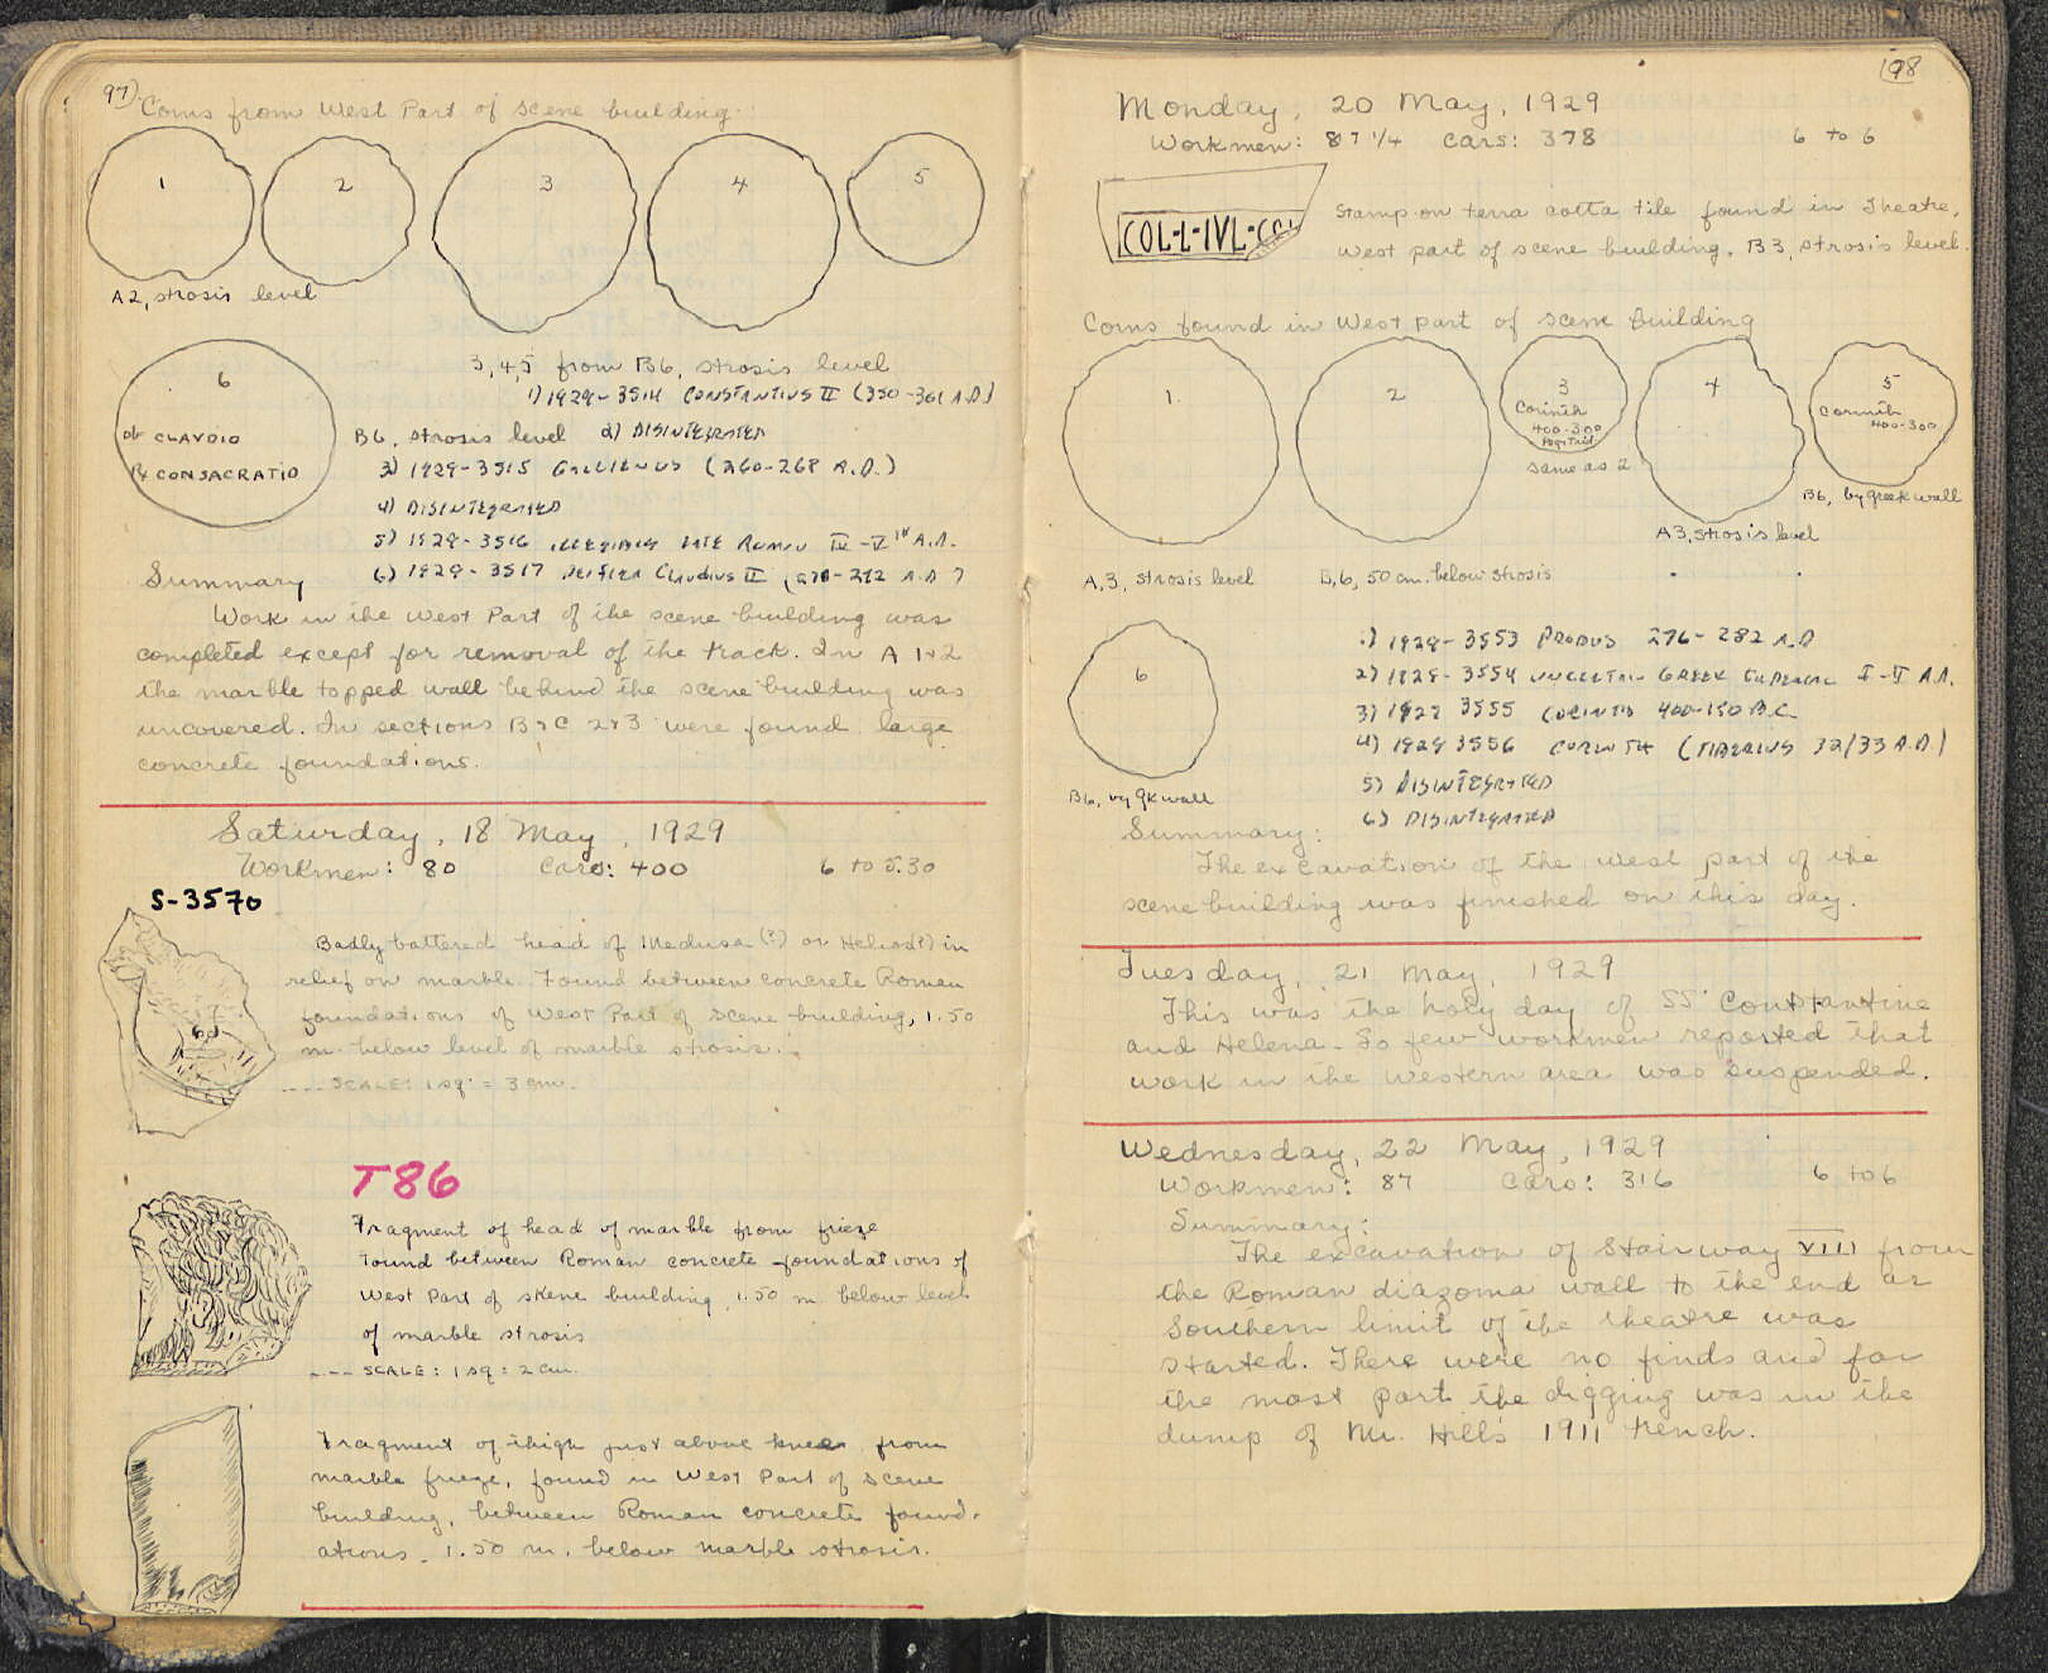 97)
Coins from West Part of scene building
1
2
3
4
5
A2, strosis level
6
ob CLAVDIO
CONSACRATIO
3, 4, 5 from B6, strosis level
1) 1929-3514 CONSTANTIUS II (350-361 A.D.)
B6, strosis level 2) DISINTEGRATED
3) 1929-3515 GALLIENUS (260-268 A.D.)
4) DISINTEGRATED
5) 1929-3516 ILLEGIBLE LATE ROMAN IV-V A.D.
6) 1929-3517 DEIFIED CLAUDIUS II
Summary
Work in the West Part of the scene building was
completed except for removal of the track. In A 1+2
the marble topped wall behind the scene building was
uncovered. In sections B+C 2+3 were found large
concrete foundations.
Saturday, 18 May, 1929
Workmen: 80 Cars: 400 6 to 5.30
S-3570
Badly battered head of Medusa (?) or Helios(?) in
relief on marble. Found between concrete Roman
foundations of West Part of scene building, 1.50
m. below level of marble strosis.
---- SCALE: 1 sq. = 3 cm.
T86
Fragment of head of marble from frieze
Found between Roman concrete foundations of
West Part of skene building, 1.50 m. below level
of marble strosis
---- SCALE: 1 sq = 2 cm.
Fragment of thigh just above knee from
marble frieze, found in West Part of scene
building, between Roman concrete found-
ations. 1.50 m. below marble strosis.
98
Monday, 20 May, 1929
Workmen: 87 1/4 Cars: 378 6 to 6
COL-L-IVL-CO
Stamp on terra cotta tile found in Theatre,
West part of scene building. B3, strosis level.
Coins found in West part of scene building
1.
2
3
Corinth
400-300
same as 2
4
5
Corinth
400-300
B6, by Greek wall
A3, strosis level
A,3, strosis level
B,6, 50 cm. below strosis
6
B6, by Gk wall
1) 1929-3553 PROBUS 276-282 A.D
2) 1929-3554 UNCERTAIN GREEK IMPERIAL I-II A.D.
3) 1929 3555 CORINTH 400-150 B.C.
4) 1929 3556 CORINTH (TIBERIUS 32/33 A.D.)
5) DISINTEGRATED
6) DISINTEGRATED
Summary:
The excavation of the west part of the
scene building was finished on this day.
Tuesday, 21 May, 1929
This was the holy day of SS Constantine
and Helena. So few workmen reported that
work in the western area was suspended.
Wednesday, 22 May, 1929
Workmen: 87 Cars: 316 6 to 6
Summary:
The excavation of Stairway VIII from
the Roman diazoma wall to the end or
Southern limit of the theatre was
started. There were no finds and for
the most part the digging was in the
dump of Mr. Hill's 1911 trench.